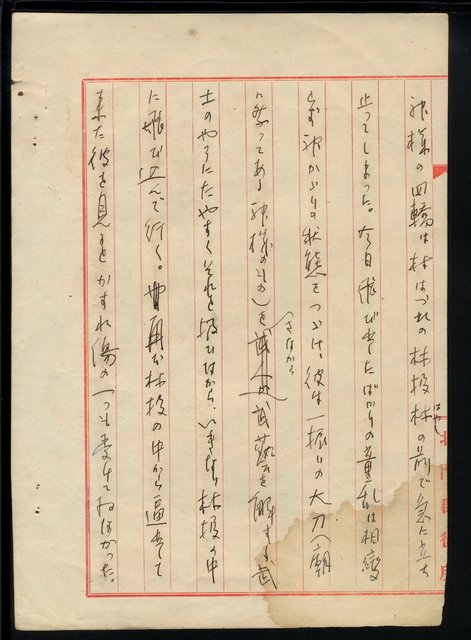 神様の四轎は村はづれの林投林の前で急に立ち
はやし
止ってしまった。今日飛び出たばかりの童乱は相変
らず神かかりの状態をつづけ、彼は一振りの大刀(廟
に祭ってある神様のもの)を 武藝を解する武
さながら
士のやうにたやすくそれを扱ひながら、いきなり林投の中
に飛び込んで行く。再び林投の中から 出て
来た彼を見るとかすれ傷の一つも受けてゐなかった。